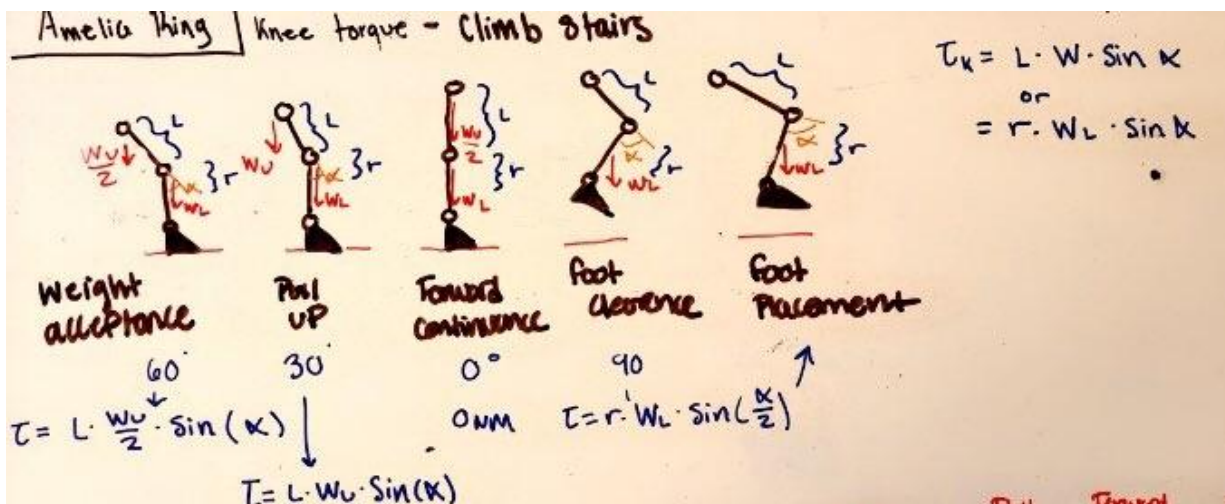 Amelia King | Knee torque - Climb Stairs
τₖ = L · W · Sin α
or
= r · W_L · Sin α
L
W_U/2
α
r
W_L
L
W_U
α
r
W_L
L
W_U/2
r
W_L
L
α
r
W_L
L
α
r
W_L
Weight acceptance
Pull UP
Forward Continuence
foot Clearence
foot Placement
60°
30
0°
90
τ = L · W_U/2 · Sin(α)
0 NM
τ = r · W_L · Sin(α/2)
τ = L · W_U · Sin(α)
Forward